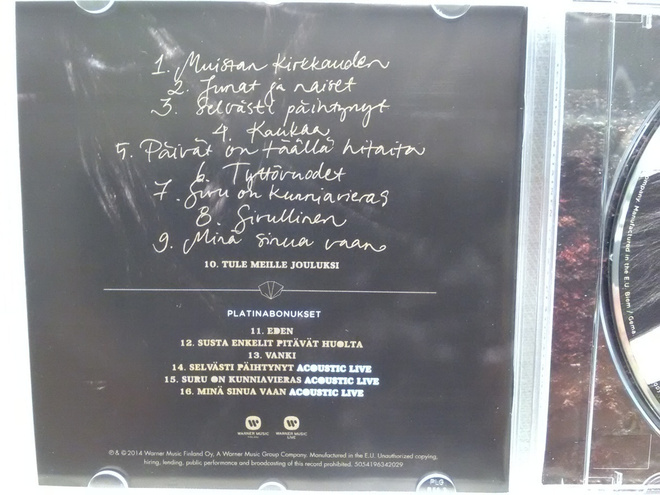 1. Muistan kirkkauden
2. Junat ja naiset
3. Selvästi päihtynyt
4. Kaukaa
5. Päivät on täällä hitaita
6. Tyttövuodet
7. Suru on kunniavieras
8. Sivullinen
9. Minä sinua vaan
10. TULE MEILLE JOULUKSI
PLATINABONUKSET
11. EDEN
12. SUSTA ENKELIT PITÄVÄT HUOLTA
13. VANKI
14. SELVÄSTI PÄIHTYNYT ACOUSTIC LIVE
15. SURU ON KUNNIAVIERAS ACOUSTIC LIVE
16. MINÄ SINUA VAAN ACOUSTIC LIVE
WARNER MUSIC WARNER MUSIC
LIVE
℗ & © 2014 Warner Music Finland Oy, A Warner Music Group Company. Manufactured in the E.U. Unauthorized copying,
hiring, lending, public performance and broadcasting of this record prohibited. 5054196342029
PLG
Company. Manufactured in the E.U. Biem / Gema